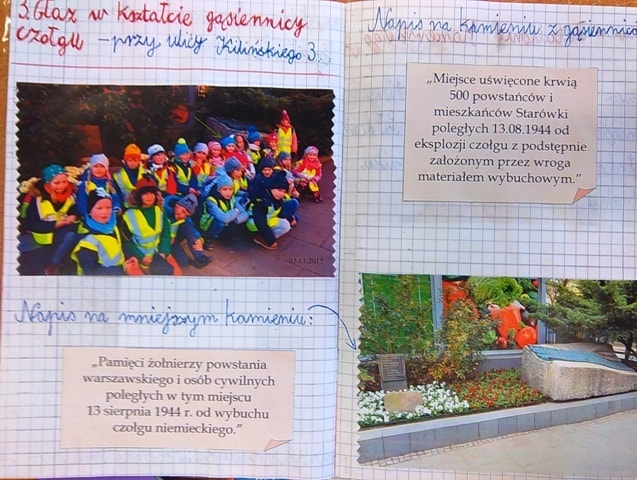 3. Głaz w kształcie gąsiennicy
czołgu – przy ulicy Kilińskiego 3.
03.11.2015
Napis na mniejszym kamieniu:
„Pamięci żołnierzy powstania
warszawskiego i osób cywilnych
poległych w tym miejscu
13 sierpnia 1944 r. od wybuchu
czołgu niemieckiego.”
Napis na kamieniu z gąsienicą
„Miejsce uświęcone krwią
500 powstańców i
mieszkańców Starówki
poległych 13.08.1944 od
eksplozji czołgu z podstępnie
założonym przez wroga
materiałem wybuchowym.”